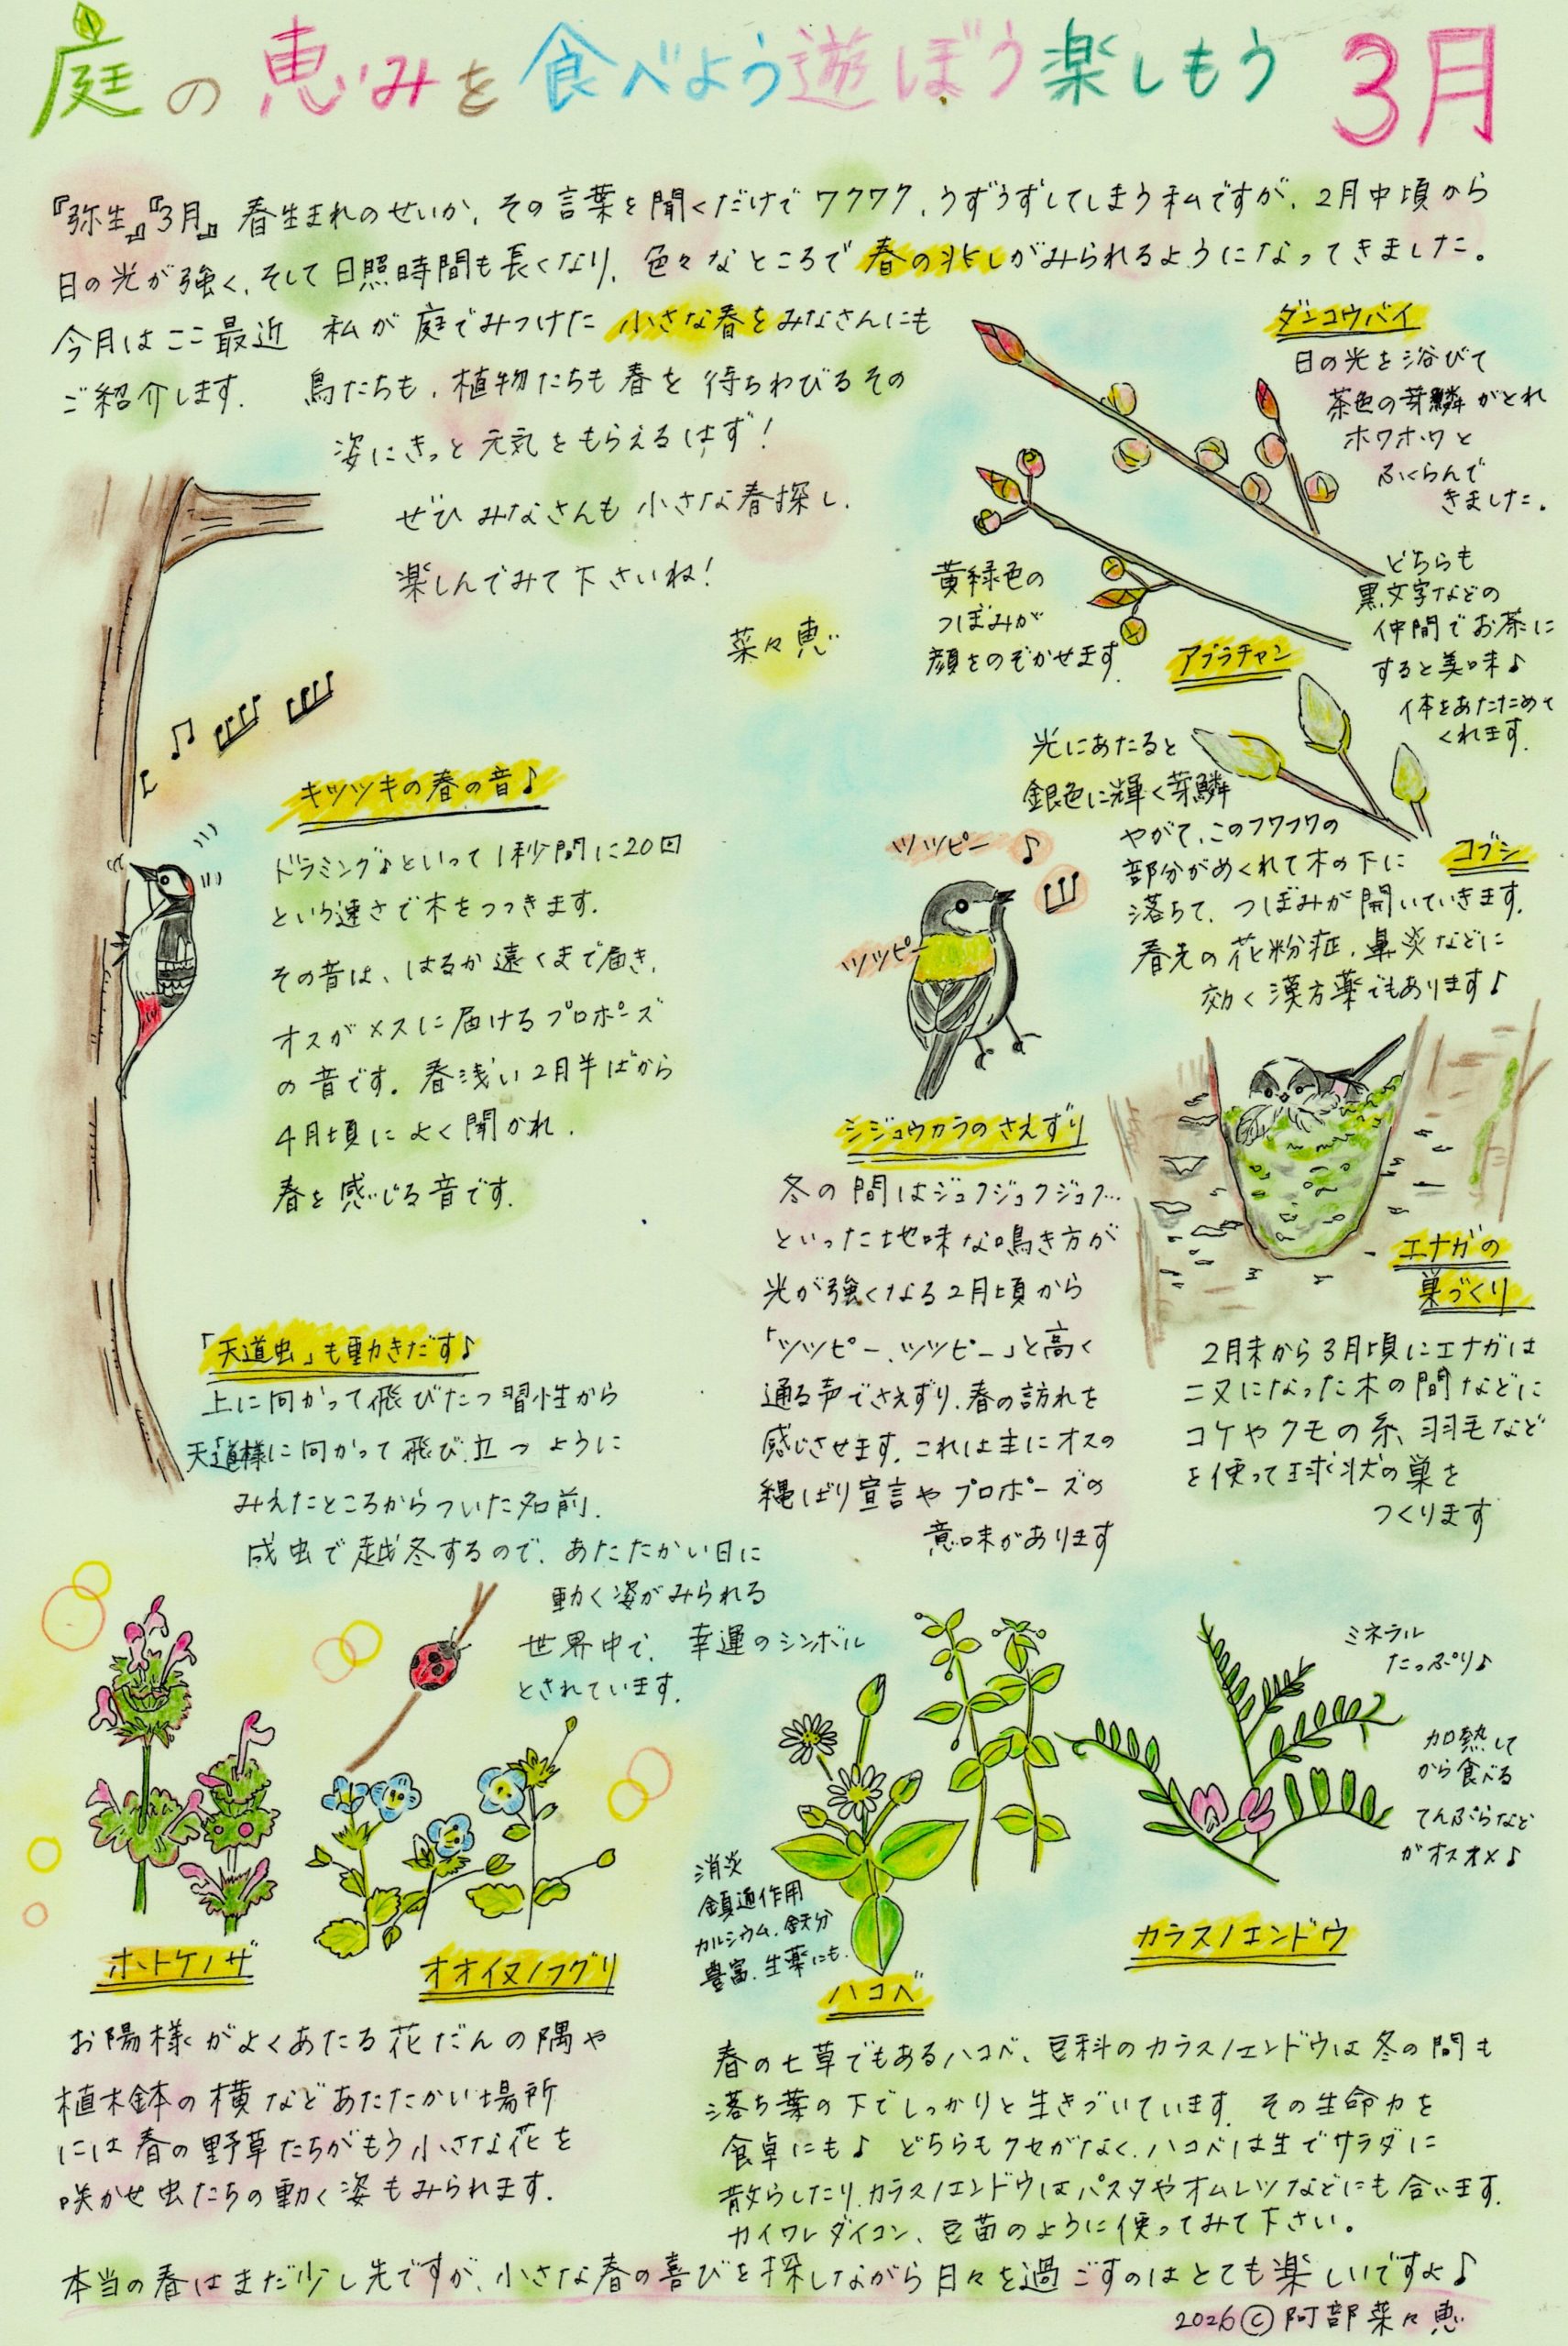 庭の恵みを食べよう遊ぼう楽しもう 3月
『弥生』『3月』 春生まれのせいか、その言葉を聞くだけでワクワク、うずうずしてしまう私ですが、2月中頃から
日の光が強く、そして日照時間も長くなり、色々なところで春の兆しがみられるようになってきました。
今月はここ最近 私が庭でみつけた小さな春をみなさんにも
ご紹介します。 鳥たちも、植物たちも春を待ちわびるその
姿にきっと元気をもらえるはず!
ぜひみなさんも小さな春探し、
楽しんでみて下さいね!
菜々恵
ダンコウバイ
日の光を浴びて
茶色の芽鱗がとれ
ホワホワと
ふくらんで
きました。
黄緑色の
つぼみが
顔をのぞかせます。
アブラチャン
どちらも
黒文字などの
仲間でお茶に
すると美味♪
体をあたためて
くれます。
光にあたると
銀色に輝く芽鱗
やがて、このフワフワの
部分がめくれて木の下に
落ちて、つぼみが開いていきます。
春先の花粉症、鼻炎などに
効く漢方薬でもあります♪
コブシ
キツツキの春の音♪
ドラミング♪といって1秒間に20回
という速さで木をつつきます。
その音は、はるか遠くまで届き、
オスがメスに届けるプロポーズ
の音です。春浅い2月半ばから
4月頃によく聞かれ、
春を感じる音です。
ツツピー ♪
ツツピー
シジュウカラのさえずり
冬の間はジュクジュクジュク…
といった地味な鳴き方が
光が強くなる2月頃から
「ツツピー、ツツピー」と高く
通る声でさえずり、春の訪れを
感じさせます。これは主にオスの
縄ばり宣言やプロポーズの
意味があります
エナガの
巣づくり
2月末から3月頃にエナガは
二又になった木の間などに
コケやクモの糸、羽毛など
を使って球状の巣を
つくります
「天道虫」も動きだす♪
上に向かって飛びたつ習性から
天道様に向かって飛び立つように
みえたところからついた名前。
成虫で越冬するので、あたたかい日に
動く姿がみられる
世界中で、幸運のシンボル
とされています。
ホトケノザ
オオイヌノフグリ
お陽様がよくあたる花だんの隅や
植木鉢の横などあたたかい場所
には春の野草たちがもう小さな花を
咲かせ虫たちの動く姿もみられます。
消炎
鎮痛作用
カルシウム、鉄分
豊富、生薬にも。
ハコベ
ミネラル
たっぷり♪
加熱して
から食べる
てんぷらなど
がオススメ♪
カラスノエンドウ
春の七草でもあるハコベ、豆科のカラスノエンドウは冬の間も
落ち葉の下でしっかりと生きづいています。その生命力を
食卓にも♪ どちらもクセがなく、ハコベは生でサラダに
散らしたり、カラスノエンドウはパスタやオムレツなどにも合います。
カイワレダイコン、豆苗のように使ってみて下さい。
本当の春はまだ少し先ですが、小さな春の喜びを探しながら日々を過ごすのはとても楽しいですよ♪
2026©阿部菜々恵